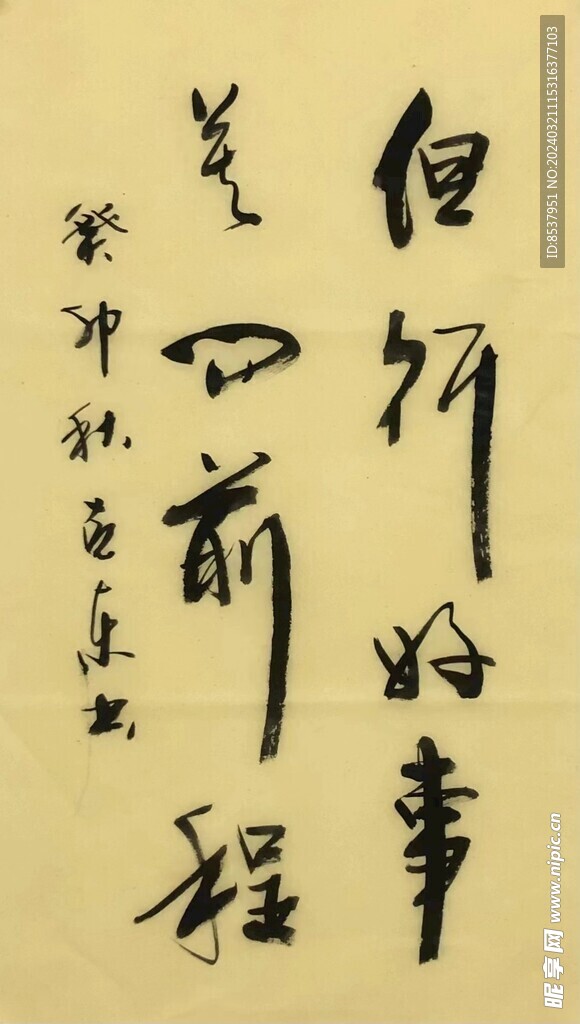 但行好事
莫问前程
癸卯秋 东书
ID:8537951 NO:20240321115316377103
昵享网 www.nipic.cn